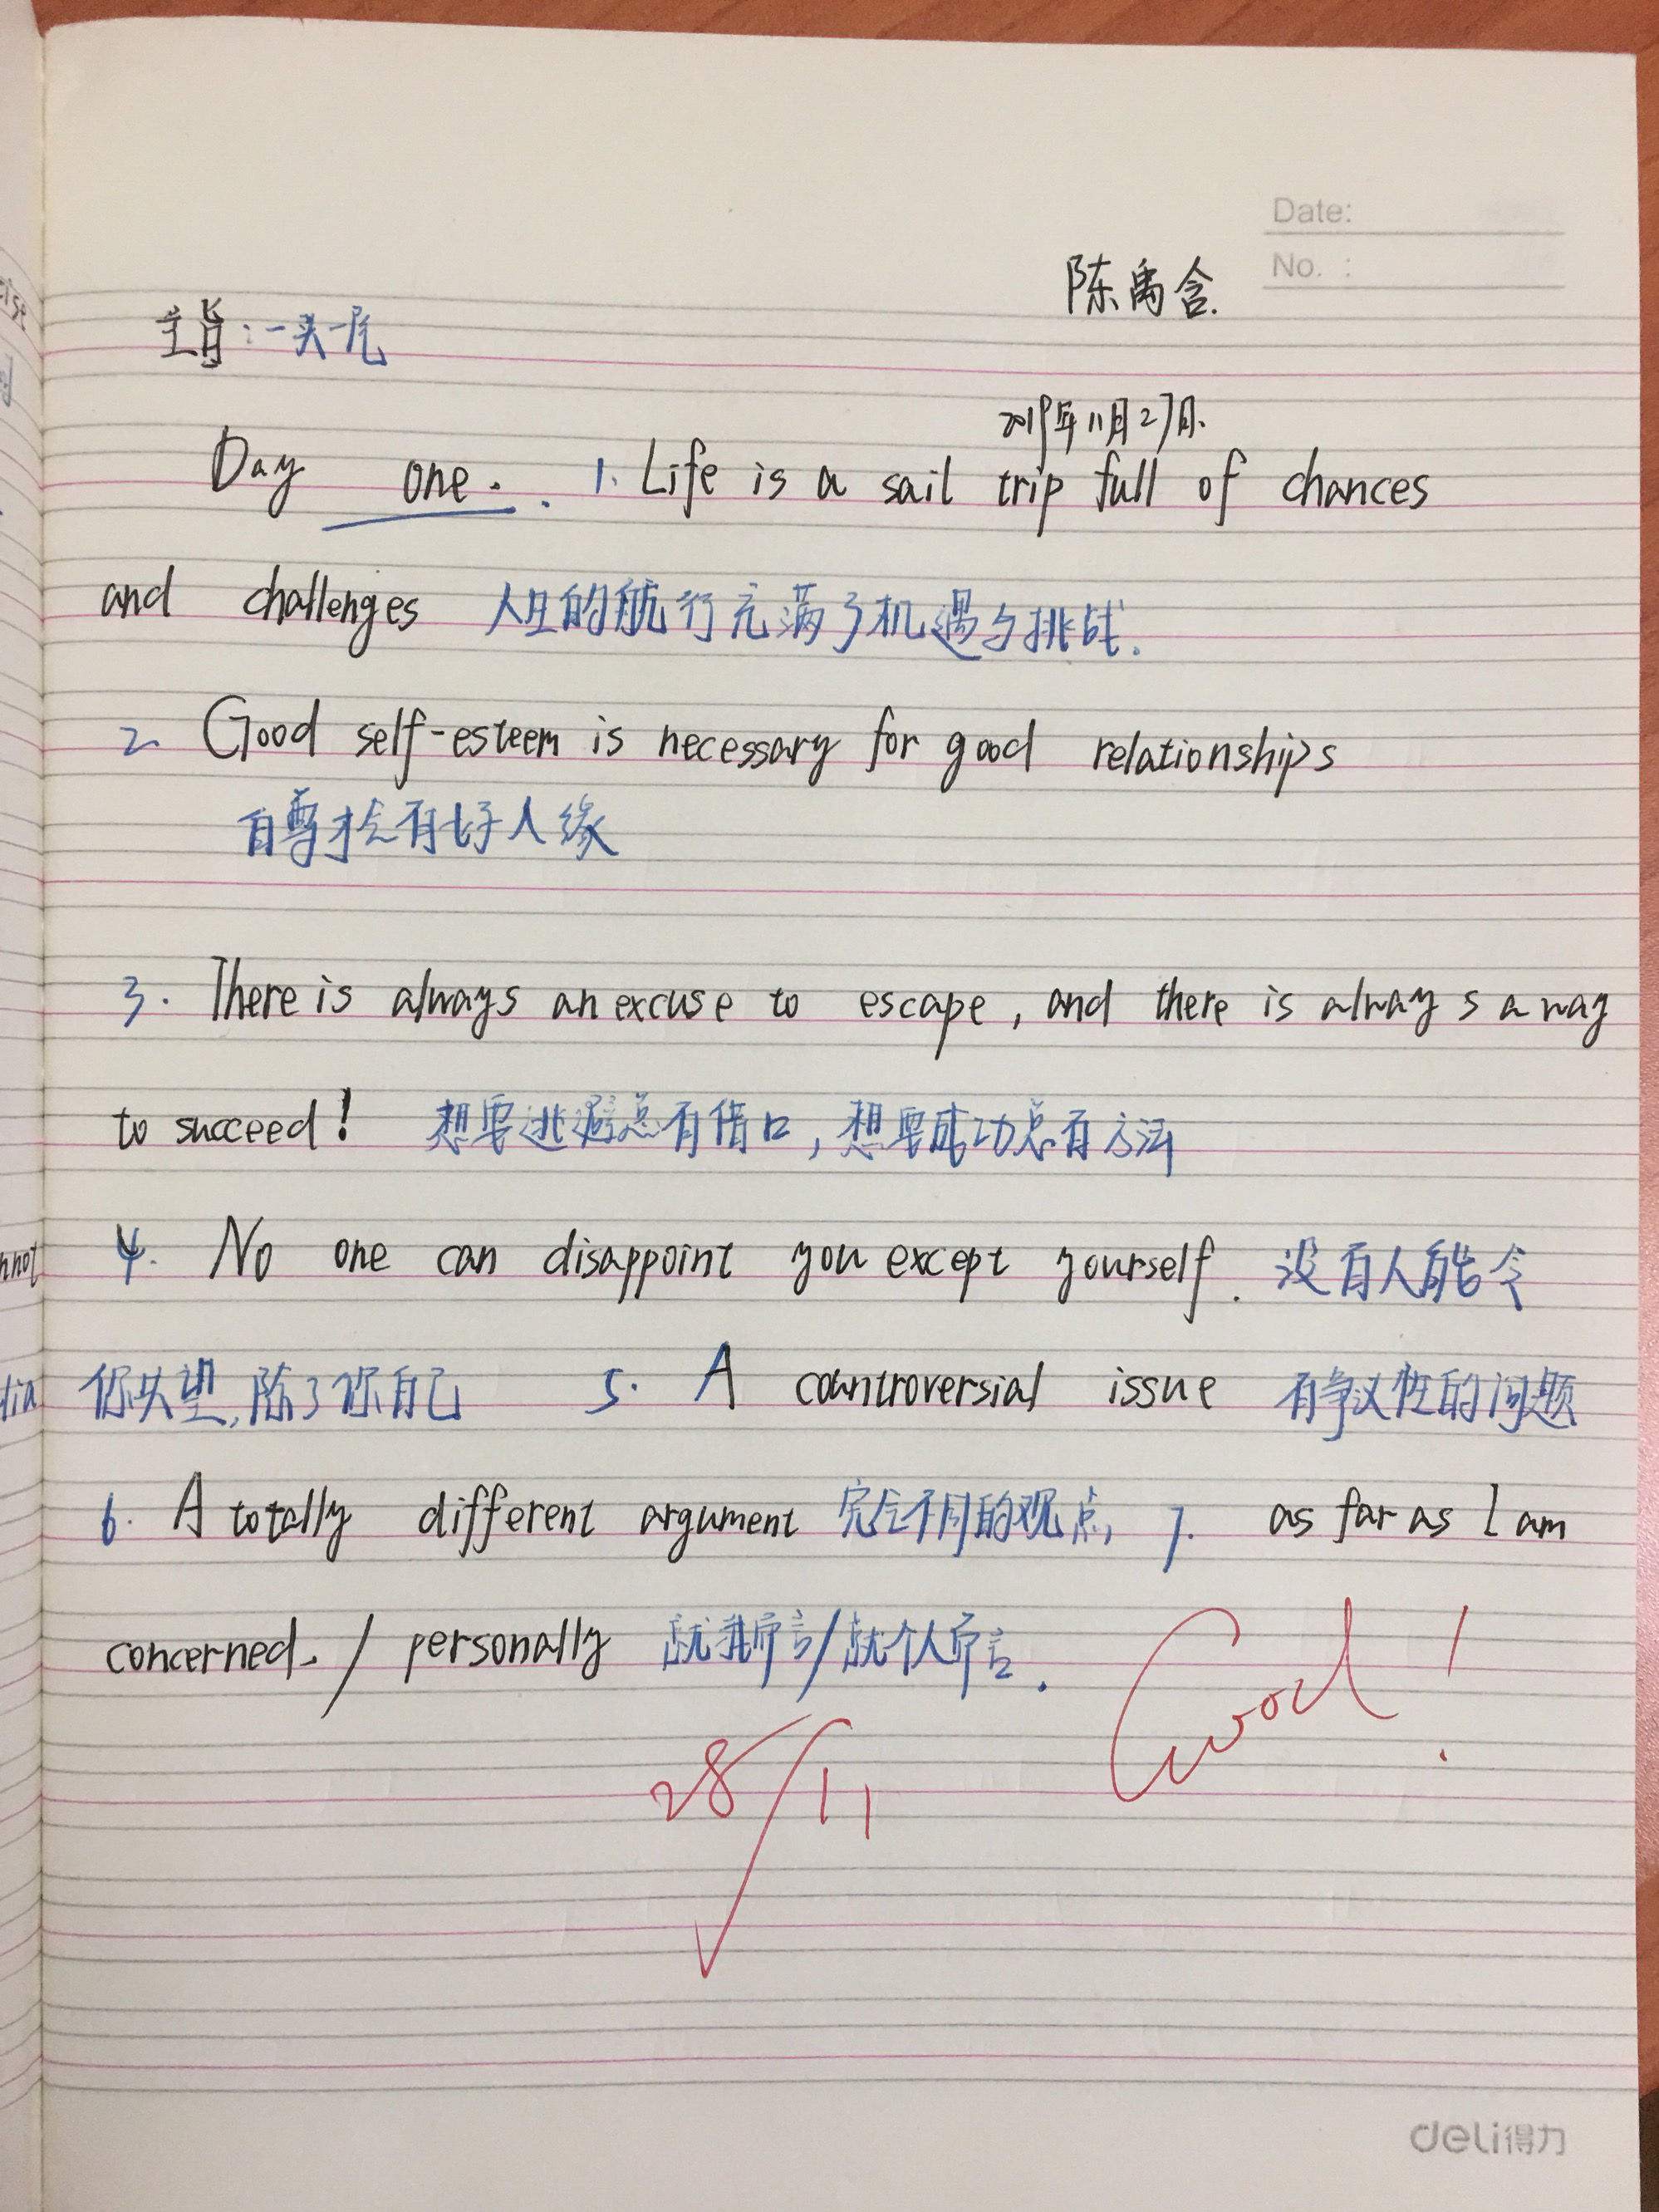 Date:
No. :
陈禹含.
主旨:一头一尾
2019年11月27日.
Day one. 1. Life is a sail trip full of chances
and challenges 人生的航行充满了机遇与挑战.
2. Good self-esteem is necessary for good relationships
自尊才会有好人缘
3. There is always an excuse to escape, and there is always a way
to succeed! 想要逃避总有借口,想要成功总有方法
4. No one can disappoint you except yourself. 没有人能令
你失望,除了你自己 5. A countroversial issue 有争议性的问题
6. A totally different argument 完全不同的观点, 7. as far as I am
concerned. / personally 就我而言/就个人而言.
Good!
28/11
deli得力
nnot
dia